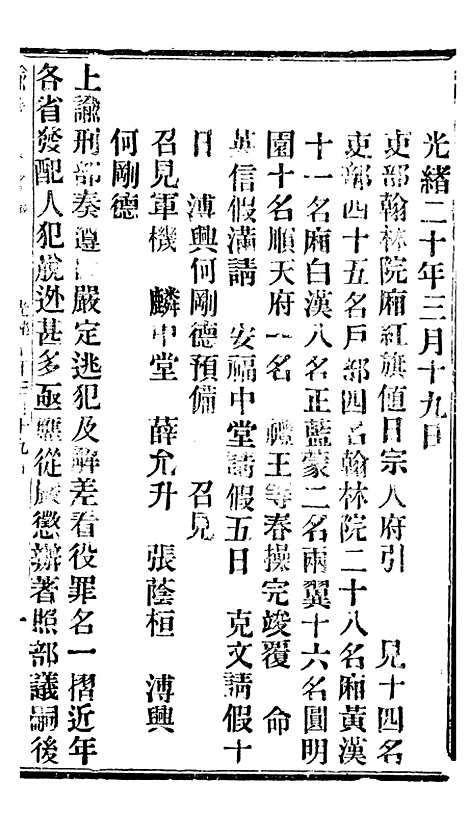 光緒二十年三月十九日
吏部翰林院廂紅旗値日宗人府引　見十四名
吏部四十五名戶部四名翰林院二十八名廂黃漢
十一名廂白漢八名正藍蒙二名兩翼十六名圓明
園十名順天府一名　禮王等春操完竣覆　命
英信假滿請　安福中堂請假五日　克文請假十
日　溥興何剛德預備　召見
召見軍機　麟中堂　薛允升　張蔭桓　溥興
何剛德
上諭刑部奏遵　嚴定逃犯及解差看役罪名一摺近年
各省發配人犯脫逃甚多亟應從嚴懲辦著照部議嗣後